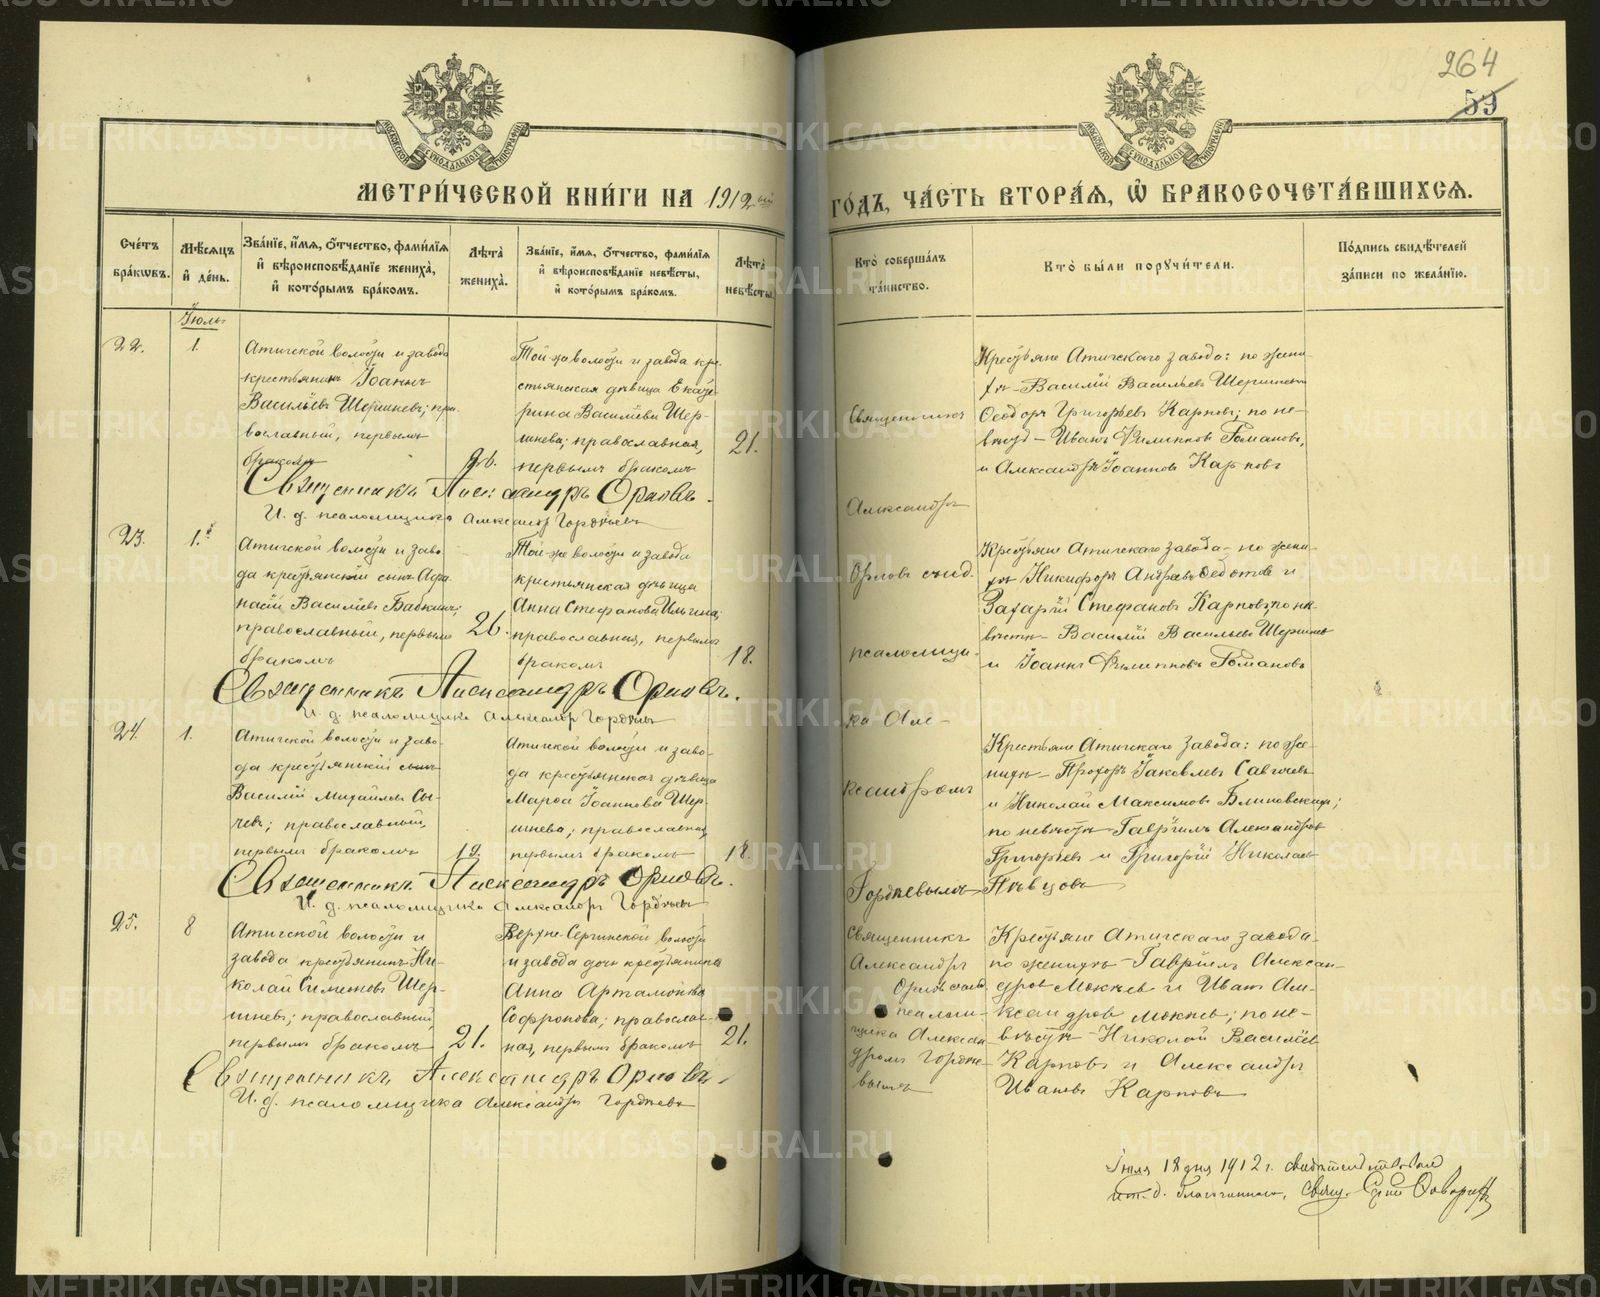 264
59
МОСКОВСКОЙ СѴНОДАЛЬНОЙ ТИПОГРАФІИ
МОСКОВСКОЙ СѴНОДАЛЬНОЙ ТИПОГРАФІИ
МЕТРИ́ЧЕСКОЙ КНИ́ГИ НА 1912ый
ГО́ДЪ, ЧА́СТЬ ВТОРА́Я, Ѽ БРАКОСОЧЕТА́ВШИХСѦ.
Сче́тъ бра́кѡвъ.
Мѣ́сѧцъ и҆ де́нь.
Зва́нїе, и҆́мѧ, ѻ҆́тчество, фами́лїѧ и҆ вѣроисповѣ́данїе жениха̀, и҆ кото́рымъ бра́комъ.
Лѣ́та̀ жениха̀.
Зва́нїе, и҆́мѧ, ѻ҆́тчество, фами́лїѧ и҆ вѣроисповѣ́данїе невѣ́сты, и҆ кото́рымъ бра́комъ.
Лѣ́та̀ невѣ́сты.
Кто̀ соверша́лъ та́инство.
Кто̀ бы́ли порꙋчи́тели.
По́дпись свидѣ́телей за́писи по жела́нїю.
Іюль
22.
1.
Атигской волости и завода
крестьянинъ Іоаннъ
Васильевъ Шершневъ; пра-
вославный, первымъ
бракомъ
Той-же волости и завода кре-
стьянская дѣвица Екате-
рина Васильева Шер-
шнева; православная,
первымъ бракомъ
21.
Крестьяне Атигскаго завода: по жени-
хѣ - Василій Васильевъ Шершневъ
Ѳеодоръ Григорьевъ Карповъ; по не-
вѣстѣ - Иванъ Филипповъ Томановъ,
и Александръ Іоанновъ Карповъ
Священникъ Александръ Орловъ.
И. д. псаломщика Александръ Гордѣевъ
23.
1.
Атигской волости и заво-
да крестьянскій сынъ Аѳа-
насій Васильевъ Бабкинъ;
православный, первымъ
бракомъ
26.
Той-же волости и завода
крестьянская дѣвица
Анна Стефанова Ильина;
православная, первымъ
бракомъ
18.
Крестьяне Атигскаго завода - по жени-
хѣ Никифоръ Андреевъ Ѳедотовъ и
Захарій Стефановъ Карповъ; по не-
вѣстѣ - Василій Васильевъ Шершневъ
и Іоаннъ Филипповъ Томановъ
Священникъ Александръ Орловъ.
И. д. псаломщика Александръ Гордѣевъ
24.
1.
Атигской волости и заво-
да крестьянскій сынъ
Василій Михайловъ Сы-
чевъ; православный,
первымъ бракомъ
19.
Атигской волости и заво-
да крестьянская дѣвица
Марѳа Іоаннова Шер-
шнева; православная,
первымъ бракомъ
18.
Крестьяне Атигскаго завода: по же-
нихѣ - Прохоръ Іаковлевъ Савичевъ
и Николай Максимовъ Блиновскихъ;
по невѣстѣ - Гавріилъ Александровъ
Григорьевъ и Григорій Николаевъ
Пѣвцовъ
Священникъ
Александръ
Орловъ съ и.д.
псаломщи-
ка Але-
ксандромъ
Гордѣевымъ
Священникъ Александръ Орловъ.
И. д. псаломщика Александръ Гордѣевъ
25.
8
Атигской волости и
завода крестьянинъ Ни-
колай Симеоновъ Шер-
шневъ; православный,
первымъ бракомъ
21.
Верхне-Сергинской волости
и завода дочь крестьянина
Анна Артамонова
Софронова; православ-
ная, первымъ бракомъ
21.
Священникъ
Александръ
Орловъ съ и.д.
псалом-
щика Алексан-
дромъ Гордѣе-
вымъ
Крестьяне Атигскаго завода -
по женихѣ - Гавріилъ Алексан-
дровъ Мокѣевъ и Иванъ Але-
ксандровъ Мокѣевъ; по не-
вѣстѣ - Николай Васильевъ
Карповъ и Александръ
Ивановъ Карповъ
Священникъ Александръ Орловъ.
И. д. псаломщика Александръ Гордѣевъ
Іюля 18 дня 1912 г. свидѣтельствовалъ
и. д. благочиннаго, свящ. Сергій
METRIKI.GASO-URAL.RU